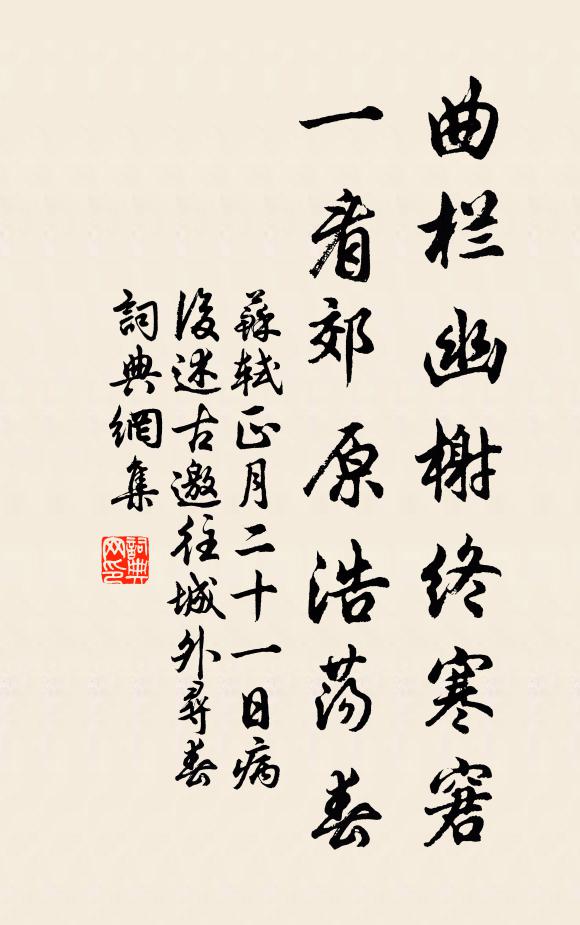 曲栏幽榭终寒窘
一看郊原浩荡春
蘇軾正月二十一日病
後述古邀往城外尋春
詞典網集
詞典网印